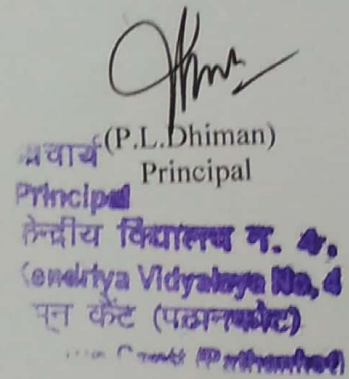 (P.L.Dhiman)
Principal
प्राचार्य
Principal
केन्द्रीय विद्यालय न. 4,
Kendriya Vidyalaya No, 4
केंट (पठानकोट)
Cantt (Pathankot)